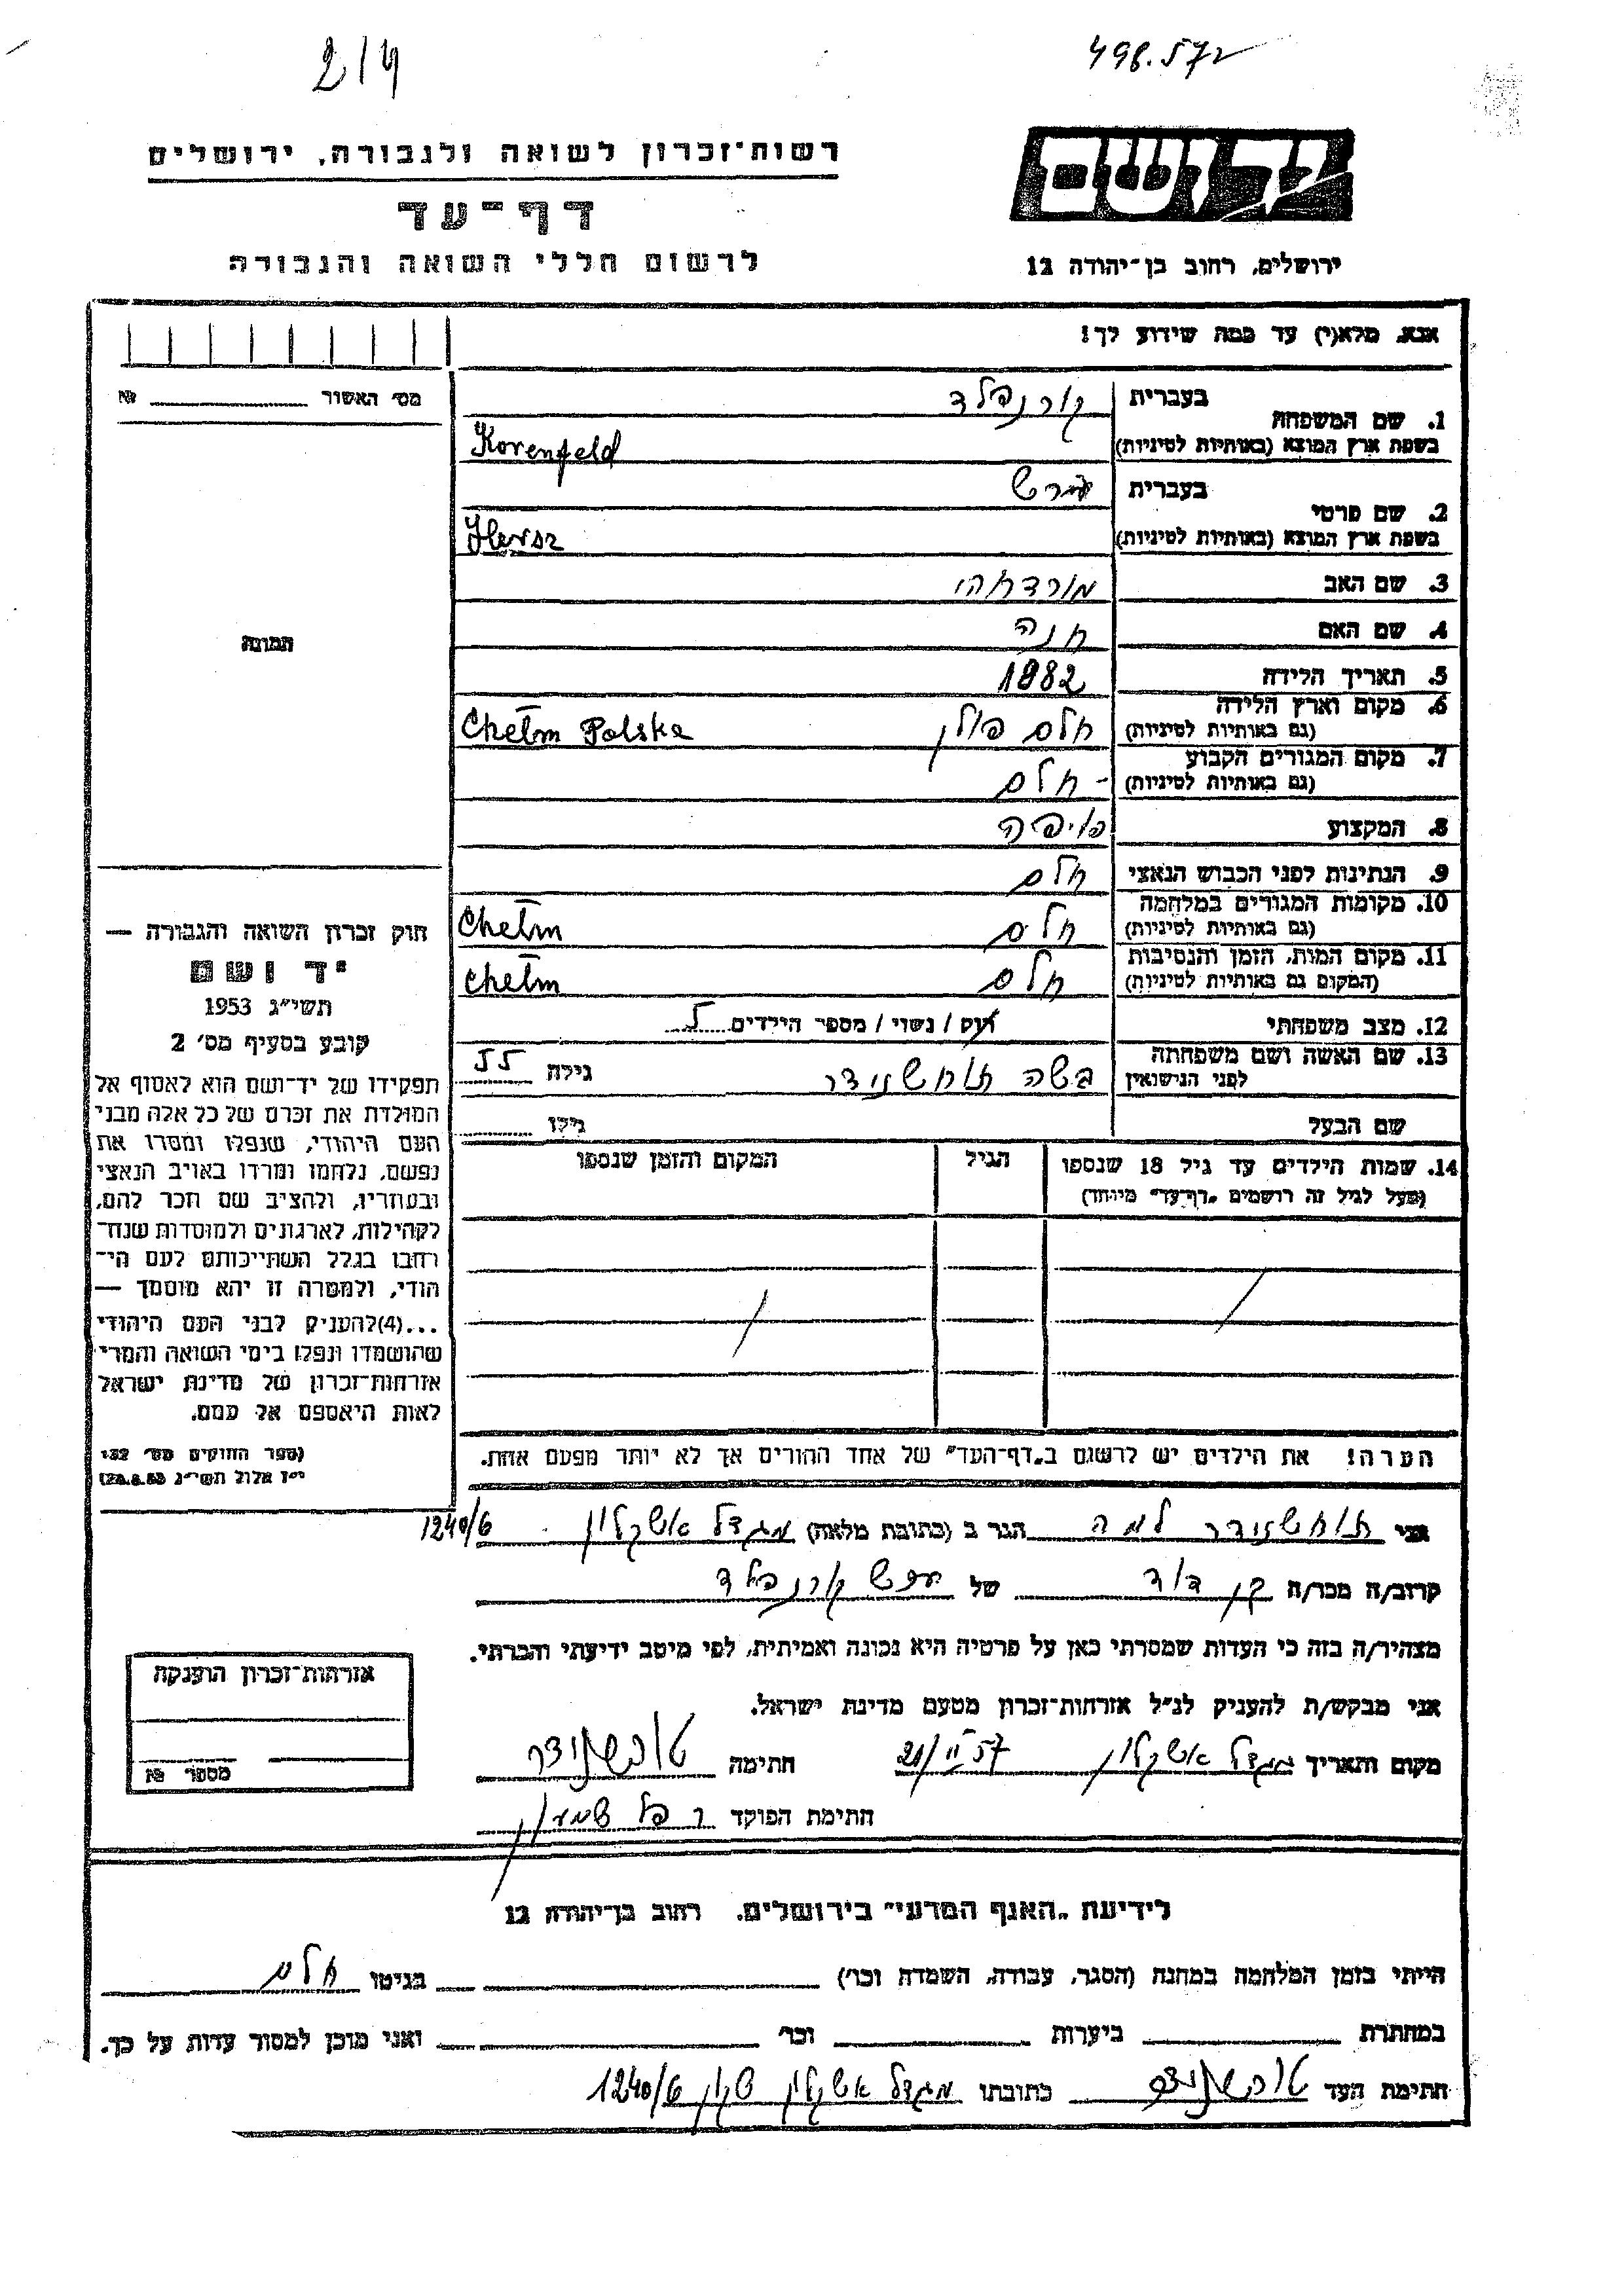 2/4
498.572
רשות־זכרון לשואה ולגבורה, ירושלים
יד ושם
דף־עד
לרשום חללי השואה והגבורה
ירושלים, רחוב בן־יהודה 12
אנא, מלא(י) עד כמה שידוע לך!
מס׳ האשור № 
1. שם המשפחה בעברית קורנפלד
בשפת ארץ המוצא (באותיות לטיניות) Korenfeld
2. שם פרטי בעברית הרש
בשפת ארץ המוצא (באותיות לטיניות) Hersz
3. שם האב
4. שם האם חנה
5. תאריך הלידה 1882
6. מקום וארץ הלידה (גם באותיות לטיניות) חלם פולין Chełm Polska
7. מקום המגורים הקבוע (גם באותיות לטיניות) חלם -
8. המקצוע
9. הנתינות לפני הכבוש הנאצי חלם
10. מקומות המגורים במלחמה (גם באותיות לטיניות) חלם Chełm
11. מקום המות, הזמן והנסיבות (המקום גם באותיות לטיניות) חלם Chełm
12. מצב משפחתי רווק / נשוי / מספר הילדים 5
13. שם האשה ושם משפחתה לפני הנישואין בשה טוכשנידר גילה 55
שם הבעל גילו
14. שמות הילדים עד גיל 18 שנספו הגיל המקום והזמן שנספו
(מעל לגיל זה רושמים „דף־עד״ מיוחד)
הערה! את הילדים יש לרשום ב„דף־העד״ של אחד ההורים אך לא יותר מפעם אחת.
התמונה
חוק זכרון השואה והגבורה —
יד ושם
תשי״ג 1953
קובע בסעיף מס׳ 2
תפקידו של יד־ושם הוא לאסוף אל
המולדת את זכרם של כל אלה מבני
העם היהודי, שנפלו ומסרו את
נפשם, נלחמו ומרדו באויב הנאצי
ובעוזריו, ולהציב שם וזכר להם,
לקהילות, לארגונים ולמוסדות שנח־
רבו בגלל השתייכותם לעם הי־
הודי, ולמטרה זו יהא מוסמך —
...(4)להעניק לבני העם היהודי
שהושמדו ונפלו בימי השואה והמרי
אזרחות־זכרון של מדינת ישראל
לאות היאספם אל עמם.
(ספר החוקים מס׳ 132
י״ז אלול תשי״ג 28.8.53)
אני טוכשנידר הגר ב (כתובת מלאה) מגדל אשקלון 1240/6
קרוב/ה מכר/ה בן דוד של הרש קורנפלד
מצהיר/ה בזה כי העדות שמסרתי כאן על פרטיה היא נכונה ואמיתית, לפי מיטב ידיעתי והכרתי.
אני מבקש/ת להעניק לנ״ל אזרחות־זכרון מטעם מדינת ישראל.
מקום ותאריך מגדל אשקלון 21/II 57 חתימה טוכשנידר
חתימת הפוקד
אזרחות־זכרון הוענקה
מספר №
לידיעת „האגף המדעי״ בירושלים, רחוב בן־יהודה 12
הייתי בזמן המלחמה במחנה (הסגר, עבודה, השמדה וכו׳) בגיטו חלם
במחתרת ביערות וכו׳ ואני מוכן למסור עדות על כך.
חתימת העד טוכשנידר כתובתו מגדל אשקלון שכון 1240/6